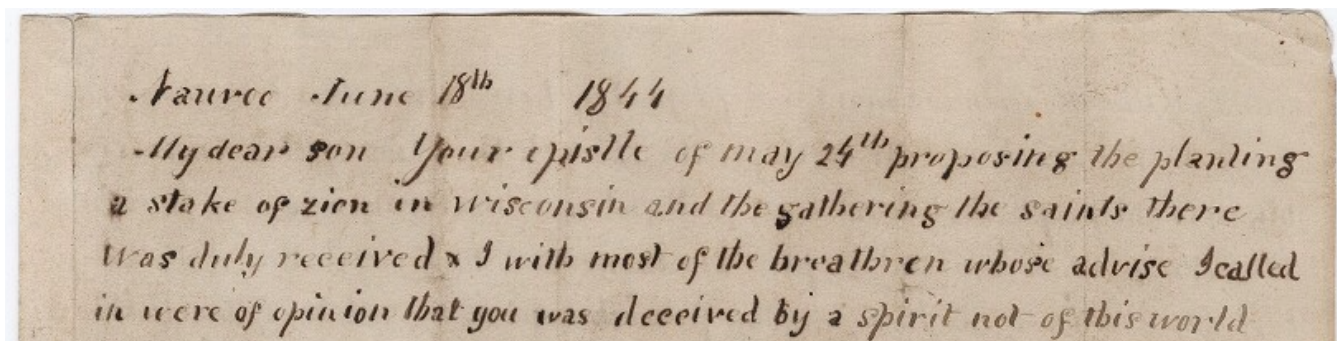 Nauvoo June 18th 1844
My dear son Your epistle of may 24th proposing the planting
a stake of zion in wisconsin and the gathering the saints there
was duly received & I with most of the breathren whose advise I called
in were of opinion that you was deceived by a spirit not of this world